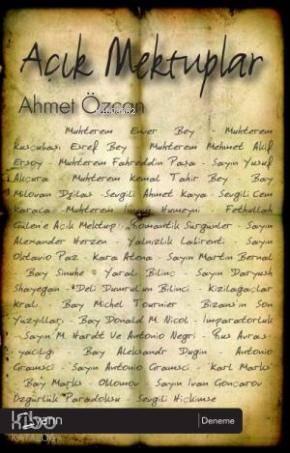 Açık Mektuplar
Ahmet Özcan
Muhterem Enver Bey - Muhterem
Kuşçubaşı Eşref Bey - Muhterem Mehmet Akif
Ersoy - Muhterem Fahreddin Paşa - Sayın Yusuf
Akçura - Muhterem Kemal Tahir Bey - Bay
Milovan Djilas - Sevgili Ahmet Kaya - Sevgili Cem
Karaca - Muhterem İmam Humeyni - Fethullah
Gülen'e Açık Mektup - Romantik Sürgünler - Sayın
Alexander Herzen - Yalnızlık Labirenti - Sayın
Oktavio Paz - Kara Atena - Sayın Martin Bernal
- Bay Sinuhe - Yaralı Bilinç - Sayın Daryush
Shayegan - Deli Dumrul'un Bilinci - Kızılağaçlar
Kralı - Bay Michel Tournier - Bizans'ın Son
Yüzyılları - Bay Donald M. Nicol - İmparatorluk
- Sayın M. Hardt Ve Antonio Negri - Rus Avras-
yacılığı - Bay Aleksandr Dugin - Antonio
Gramsci - Sayın Antonio Gramsci - Karl Marks
- Bay Marks - Oblomov - Sayın Ivan Goncarov
Özgürlük Paradoksu - Sevgili Hiçkimse
Deneme